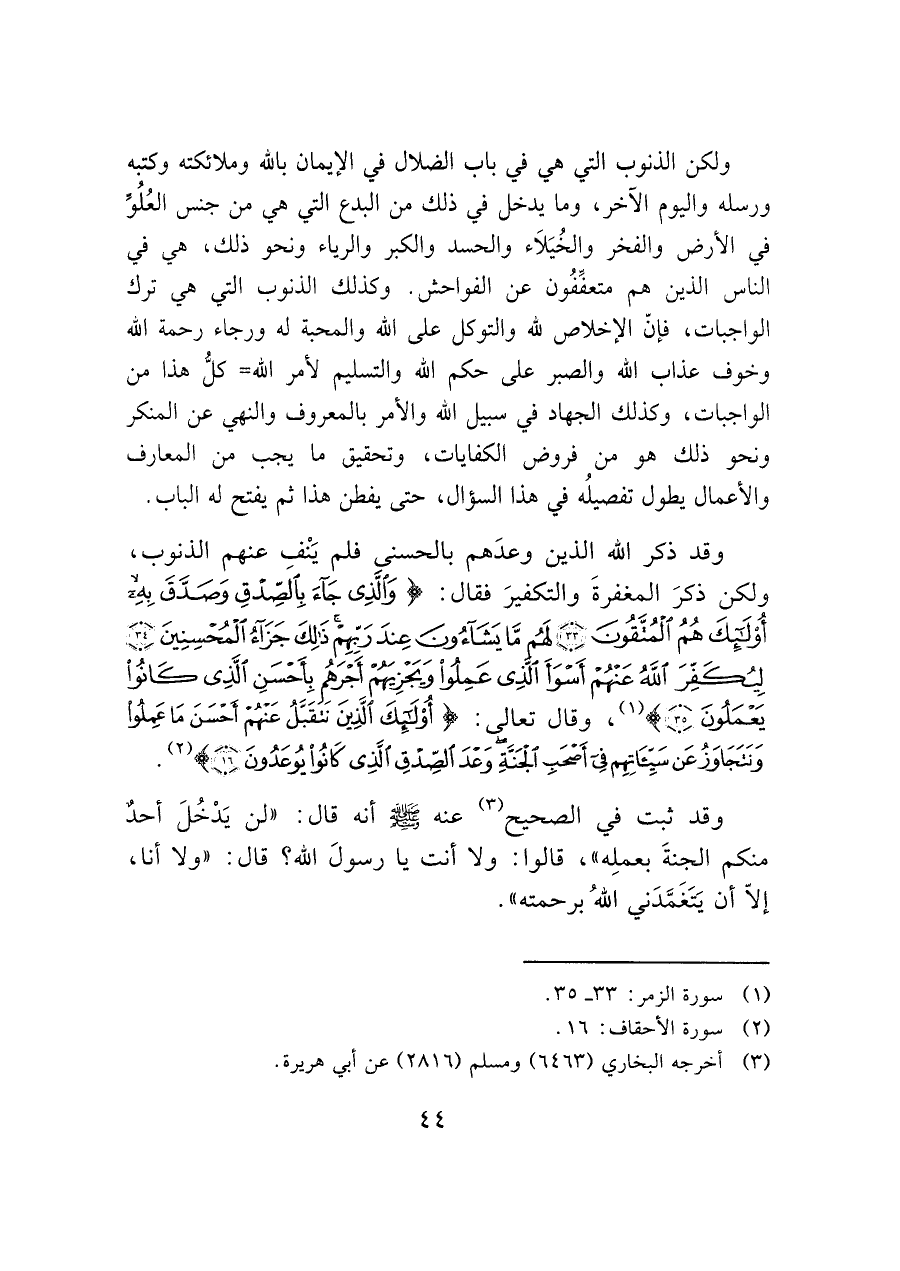 ولكن الذنوب التي هي في باب الضلال في الإيمان بالله وملائكته وكتبه
ورسله واليوم الآخر، وما يدخل في ذلك من البدع التي هي من جنس العُلُوِّ
في الأرض والفخر والخُيَلَاء والحسد والكبر والرياء ونحو ذلك، هي في
الناس الذين هم متعفِّفُون عن الفواحش. وكذلك الذنوب التي هي ترك
الواجبات، فإنّ الإخلاص لله والتوكل على الله والمحبة له ورجاء رحمة الله
وخوف عذاب الله والصبر على حكم الله والتسليم لأمر الله= كلُّ هذا من
الواجبات، وكذلك الجهاد في سبيل الله والأمر بالمعروف والنهي عن المنكر
ونحو ذلك هو من فروض الكفايات، وتحقيق ما يجب من المعارف
والأعمال يطول تفصيلُه في هذا السؤال، حتى يفطن هذا ثم يفتح له الباب.
وقد ذكر الله الذين وعدَهم بالحسنى فلم يَنْفِ عنهم الذنوب،
ولكن ذكرَ المغفرةَ والتكفيرَ فقال: ﴿ وَٱلَّذِى جَآءَ بِٱلصِّدْقِ وَصَدَّقَ بِهِۦٓۙ
أُوْلَٰٓئِكَ هُمُ ٱلْمُتَّقُونَ ٣٣ لَهُم مَّا يَشَآءُونَ عِندَ رَبِّهِمْۚ ذَٰلِكَ جَزَآءُ ٱلْمُحْسِنِينَ ٣٤
لِيُكَفِّرَ ٱللَّهُ عَنْهُمْ أَسْوَأَ ٱلَّذِى عَمِلُواْ وَيَجْزِيَهُمْ أَجْرَهُم بِأَحْسَنِ ٱلَّذِى كَانُواْ
يَعْمَلُونَ ٣٥﴾(١)، وقال تعالى: ﴿ أُوْلَٰٓئِكَ ٱلَّذِينَ نَتَقَبَّلُ عَنْهُمْ أَحْسَنَ مَا عَمِلُواْ
وَنَتَجَاوَزُ عَن سَيِّـَٔاتِهِمْ فِىٓ أَصْحَٰبِ ٱلْجَنَّةِۖ وَعْدَ ٱلصِّدْقِ ٱلَّذِى كَانُواْ يُوعَدُونَ ١٦﴾(٢).
وقد ثبت في الصحيح(٣) عنه ﷺ أنه قال: «لن يَدْخُلَ أحدٌ
منكم الجنةَ بعملِه»، قالوا: ولا أنت يا رسولَ الله؟ قال: «ولا أنا،
إلاّ أن يَتَغَمَّدَني اللهُ برحمته».
(١) سورة الزمر: ٣٣ـ ٣٥.
(٢) سورة الأحقاف: ١٦.
(٣) أخرجه البخاري (٦٤٦٣) ومسلم (٢٨١٦) عن أبي هريرة.
٤٤